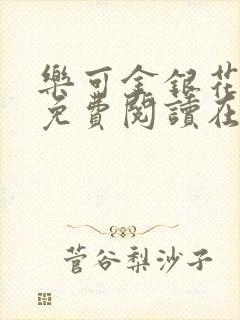 樂可金銀花
免費閱讀在
菅谷梨沙子